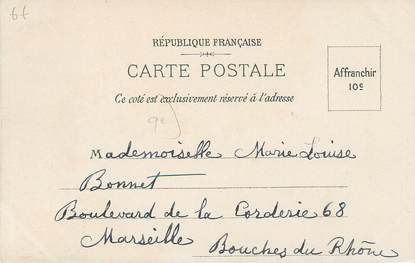 6f
RÉPUBLIQUE FRANÇAISE
CARTE POSTALE
Ce coté est exclusivement réservé à l'adresse
Affranchir
10c
Mademoiselle Marie Louise
Bonnet
Boulevard de la Corderie 68
Marseille Bouches du Rhône